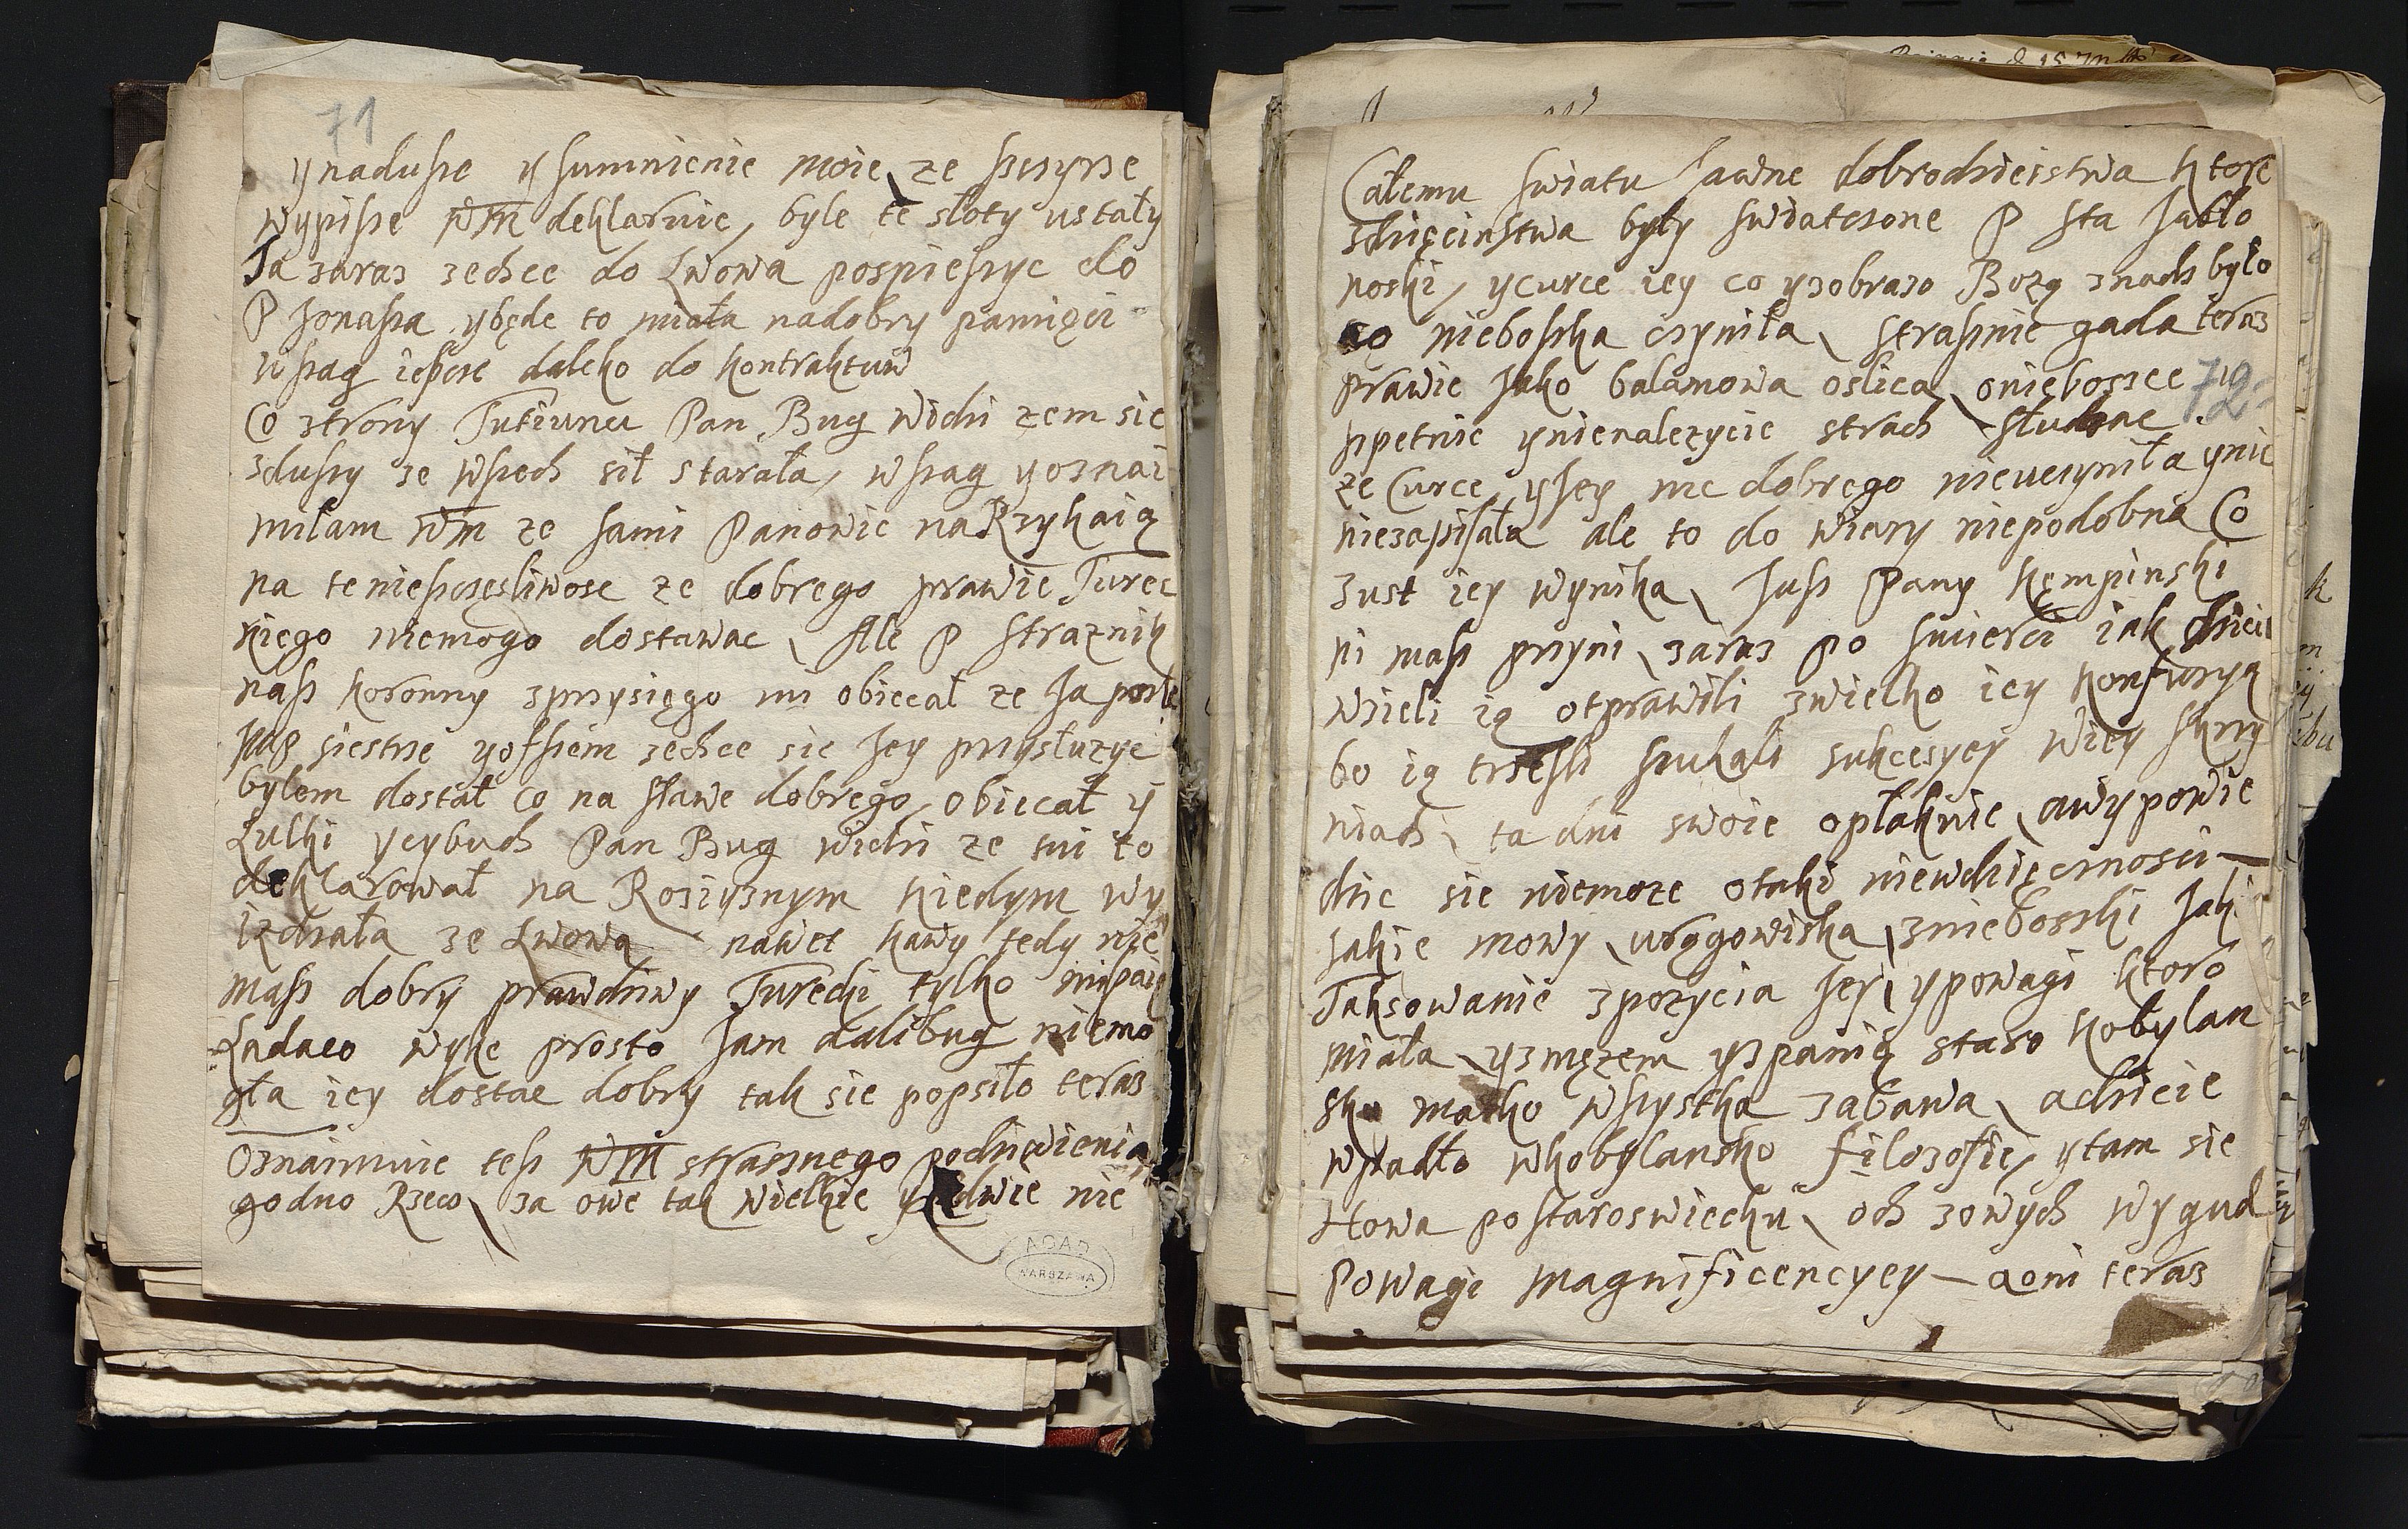 71
y na duszę y sumnienie moie, ze szczyrze
wypiszę WM deklarnie, byle te słoty ustały
Ja zaraz zechce do Lwowa pospieszyc do
P Jonasza y będe to miała na dobry pamięci
wszag ieszcze daleko do kontraktuw
Co strony Tutiunu Pan Bug widzi zem sie
z duszy ze wszech sił starała, wszag y oznai
miłam WM ze sami Panowie narzykaią
na te nieszczęsliwosc ze dobrego prawie Turec
kiego niemogo dostawac, Ale P Straznik
nasz koronny z przysięgo mi obiecał ze Ja posle
siestrze y ofszem zechce sie Jey przysłuzyc
bylem dostał co na sławe dobrego, obiecał y
Lulki y cybuch Pan Bug widzi ze mi to
deklarował na Roziyznym kiedym wy
izdzała ze Lwowa nawet kawy tedy nie
masz dobry prawdziwy Turecki tylko
Ladaco wyke prosto Jam dalibug niemo
gła iey dostac dobry tak sie popsiło teraz
Oznaimuie tesz WM strasznego podziwienia
godno Rzecz, za owe tak wielkie y nie
ADAD
WARSZAWA
Całemu swiatu Jawne dobrodzieistwa ktore
z dzięcinstwa były swiatczone P Sta Jabło
noski, y curce iey co y z obrazo Bozą znadz było
co nieboszka czyniła, strasznie gada teraz
prawie Jako balamowa oslica, o niebosszce y
72
szpetnie y nienalezycie strach słuchac
ze Curce y Jey nic dobrego nieuczyniła y nic
niezapisała ale to do wiary niepodobna Co
z ust iey wynika, Jusz Pany Kempinski
ni masz przyni, zaraz po smierci iak dzieci
wzieli ią otprawili z wielko iey konfuzyą
bo ią trzesli szukali sukcesyey w iey skrzy
niach, ta dni swoie opłakuie, a wypowie
dzic sie niemoze o taki niewdzięcznosci —
Jakie mowy, urągowiska, z niebosski Jak
Taksowanie z pozycia Jey, y powagi ktoro
miała, y z męzem y z panią staro kobylan
sko matko wszystka zabawa, a dziecie
wpadło w kobylansko filozofie, y tam sie
Howa po staroswiecku, och z owych wygud
Powagi magnificencyey — a oni teraz